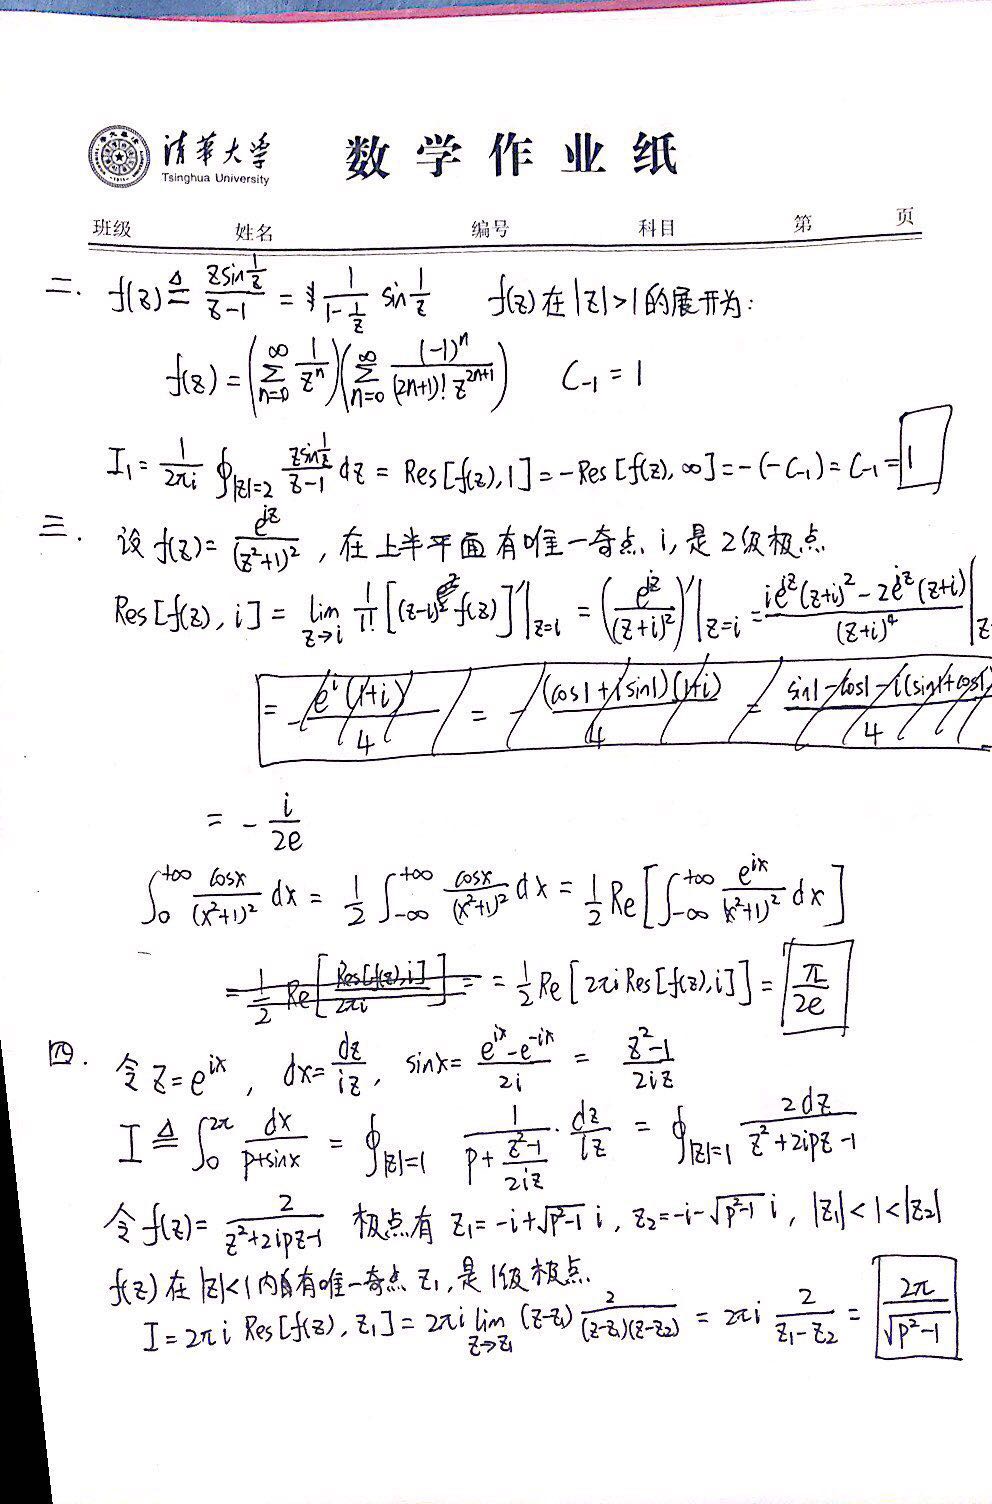 清华大学
Tsinghua University
数学作业纸
班级 姓名 编号 科目 第 页
二. f(z) ≜ \frac{z sin\frac{1}{z}}{z-1} = \frac{1}{1-\frac{1}{z}} sin\frac{1}{z} f(z)在|z|>1的展开为:
f(z) = (\sum_{n=0}^{∞} \frac{1}{z^n})(\sum_{n=0}^{∞} \frac{(-1)^n}{(2n+1)! z^{2n+1}}) C_{-1} = 1
I_1 = \frac{1}{2πi} ∮_{|z|=2} \frac{z sin\frac{1}{z}}{z-1} dz = Res[f(z),1] = -Res[f(z),∞] = -(-C_{-1}) = C_{-1} = 1
三. 设 f(z) = \frac{e^{iz}}{(z^2+1)^2}, 在上半平面有唯一奇点 i, 是2级极点
Res[f(z), i] = \lim_{z→i} \frac{1}{1!} [(z-i)^2 f(z)]'|_{z=i} = (\frac{e^{iz}}{(z+i)^2})'|_{z=i} = \frac{ie^{iz}(z+i)^2 - 2e^{iz}(z+i)}{(z+i)^4}|_{z
= -\frac{e^i(1+i)}{4} = -\frac{(cos1+isin1)(1+i)}{4} = \frac{sin1-cos1-i(sin1+cos1)}{4}
= -\frac{i}{2e}
∫_0^{+∞} \frac{cosx}{(x^2+1)^2} dx = \frac{1}{2} ∫_{-∞}^{+∞} \frac{cosx}{(x^2+1)^2} dx = \frac{1}{2} Re[∫_{-∞}^{+∞} \frac{e^{ix}}{(x^2+1)^2} dx]
= \frac{1}{2} Re[\frac{Res[f(z),i]}{2πi}] = = \frac{1}{2} Re[2πi Res[f(z),i]] = \frac{π}{2e}
四. 令 z = e^{ix}, dx = \frac{dz}{iz}, sinx = \frac{e^{ix}-e^{-ix}}{2i} = \frac{z^2-1}{2iz}
I ≜ ∫_0^{2π} \frac{dx}{p+sinx} = ∮_{|z|=1} \frac{1}{p+\frac{z^2-1}{2iz}} · \frac{dz}{iz} = ∮_{|z|=1} \frac{2dz}{z^2+2ipz-1}
令 f(z) = \frac{2}{z^2+2ipz-1} 极点有 z_1 = -i+\sqrt{p^2-1} i, z_2 = -i-\sqrt{p^2-1} i, |z_1|<1<|z_2|
f(z)在|z|<1内有唯一奇点 z_1, 是1级极点.
I = 2πi Res[f(z), z_1] = 2πi \lim_{z→z_1} (z-z_1) \frac{2}{(z-z_1)(z-z_2)} = 2πi \frac{2}{z_1-z_2} = \frac{2π}{\sqrt{p^2-1}}